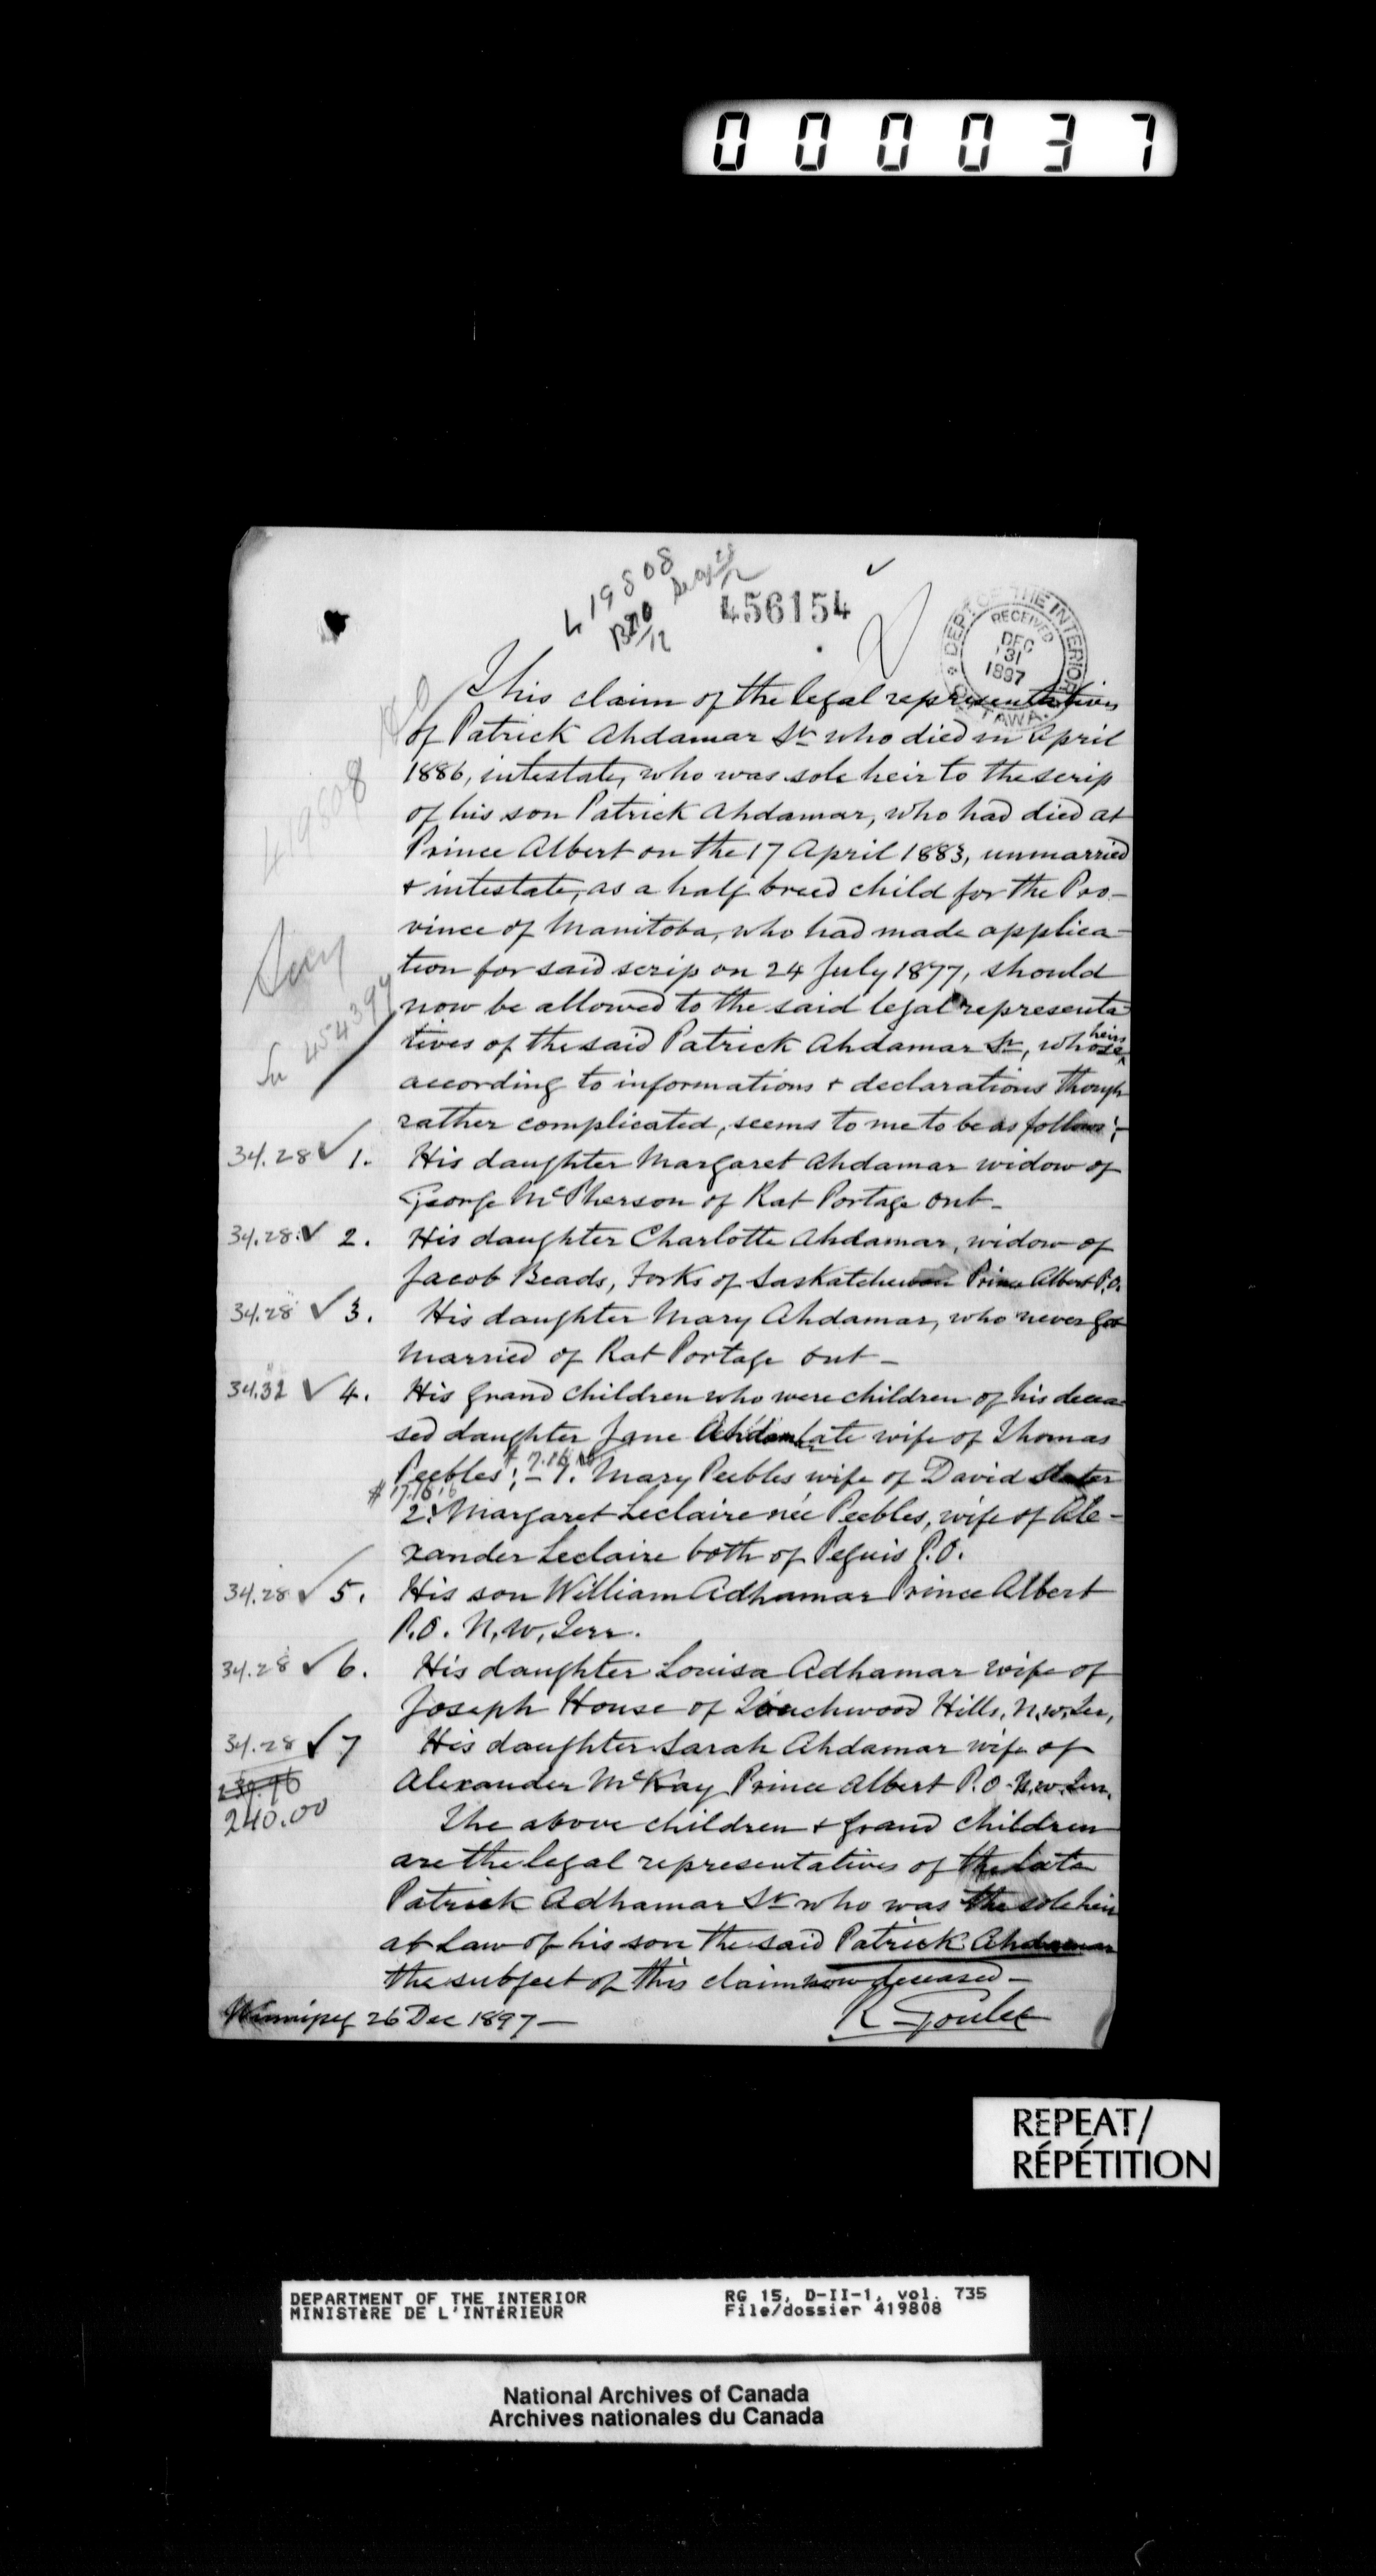 000037
419808
456154
DEPT. OF THE INTERIOR
RECEIVED
DEC
31
1897
OTTAWA
This claim of the legal representatives
of Patrick Ahdamar Sr who died in April
1886, intestate, who was sole heir to the scrip
419808
of his son Patrick Ahdamar, who had died at
Prince Albert on the 17 April 1883, unmarried
& intestate, as a half breed child for the Pro-
vince of Manitoba, who had made applica-
tion for said scrip on 24 July 1877, should
now be allowed to the said legal representa-
454394
heirs
tives of the said Patrick Ahdamar Sr, whose
according to informations & declarations though
rather complicated, seems to me to be as follows:-
34.28 ✓ 1. His daughter Margaret Ahdamar widow of
George McPherson of Rat Portage Ont-
34.28 ✓ 2. His daughter Charlotte Ahdamar, widow of
Jacob Beads, Forks of Saskatchewan Prince Albert P.O.
34.28 ✓ 3. His daughter Mary Ahdamar, who never got
married of Rat Portage Ont-
34.32 ✓ 4. His grand children who were children of his decea-
sed daughter Jane Ahdam late wife of Thomas
Peebles; - 1. Mary Peebles wife of David Slater
# 17.16
2. Margaret Leclaire née Peebles, wife of Ale-
xander Leclaire both of Peguis P.O.
34.28 ✓ 5. His son William Adhamar Prince Albert
P.O. N.W. Terr.
34.28 ✓ 6. His daughter Louisa Adhamar wife of
Joseph House of Touchwood Hills, N.W. Ter,
34.28 ✓ 7 His daughter Sarah Ahdamar wife of
239.96 Alexander McKay Prince Albert P.O. N.W. Terr.
240.00
The above children & grand children
are the legal representatives of the late
Patrick Adhamar Sr who was the sole heir
at law of his son the said Patrick Ahdamar
the subject of this claim now deceased -
Winnipeg 26 Dec 1897 - R Goulet
REPEAT/
RÉPÉTITION
DEPARTMENT OF THE INTERIOR RG 15, D-II-1, vol. 735
MINISTÈRE DE L'INTÉRIEUR File/dossier 419808
National Archives of Canada
Archives nationales du Canada